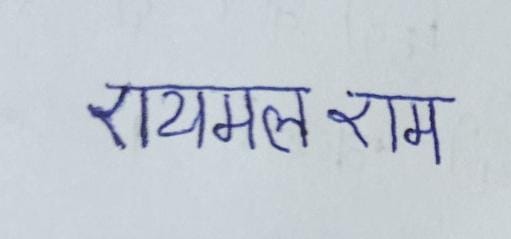 रायमल राम